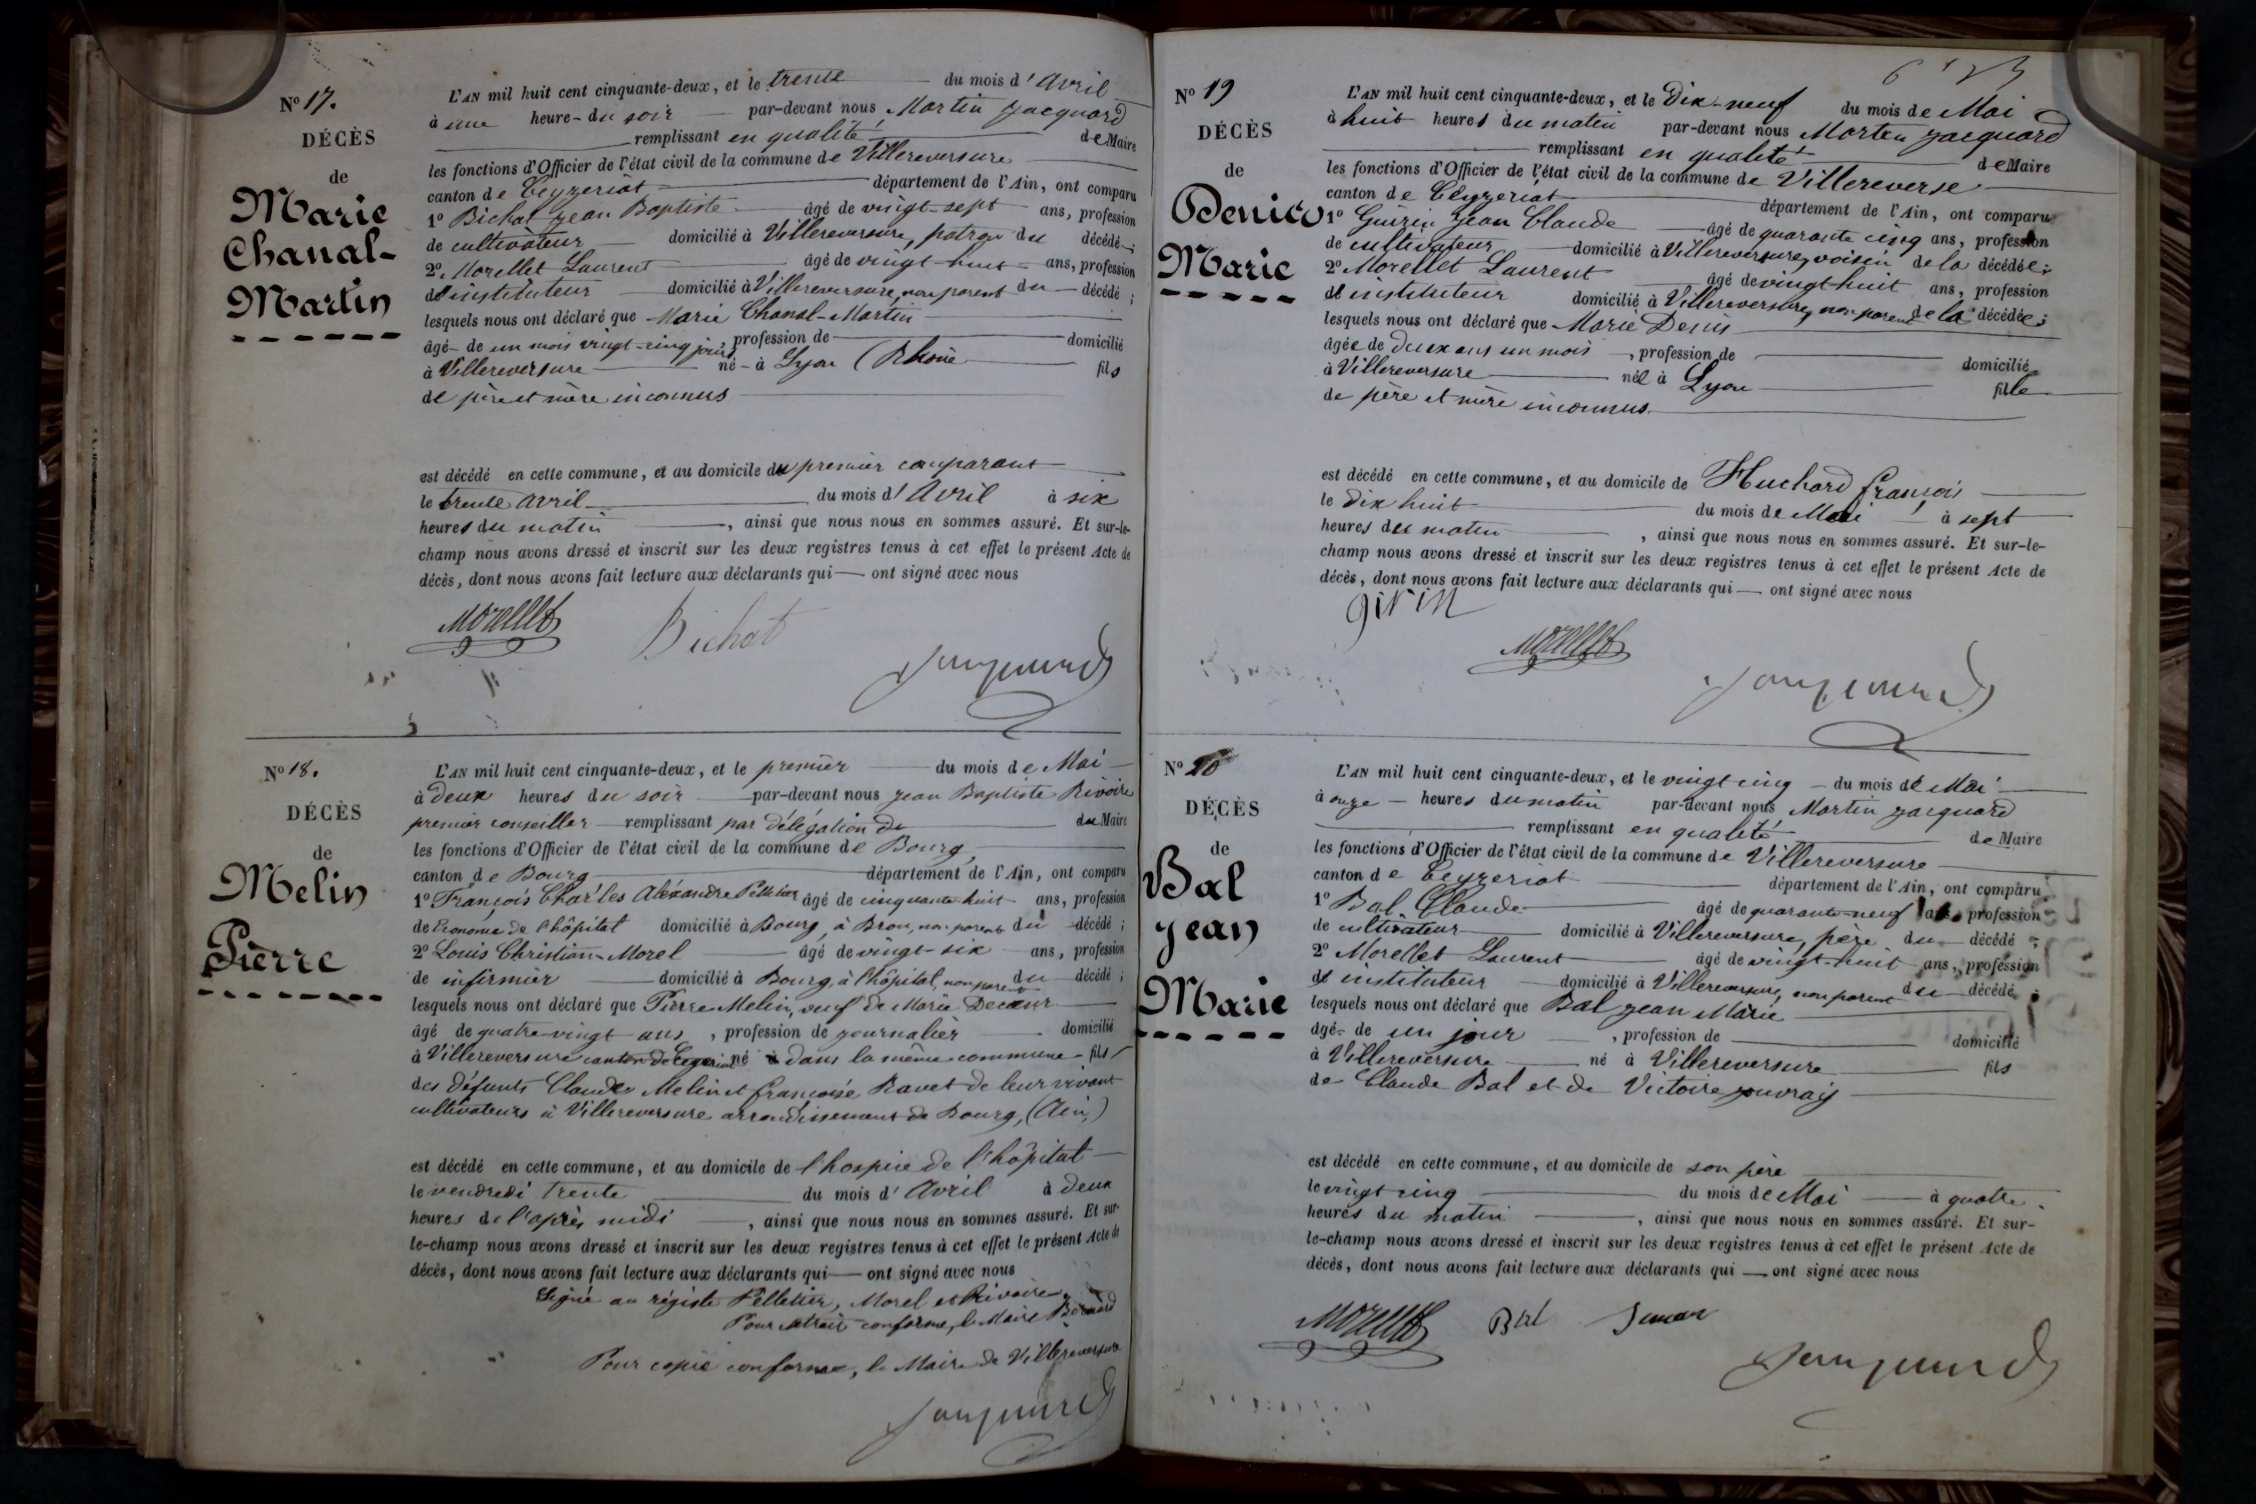 No 17.
DÉCÈS
de
Marie
Chanal-
Martin
L'AN mil huit cent cinquante-deux, et le trente du mois d'Avril
à une heure du soir par-devant nous Martin Jacquard
remplissant en qualité de Maire
les fonctions d'Officier de l'état civil de la commune de Villereversure
canton de Ceyzeriat département de l'Ain, ont comparu
1o Bichat Jean Baptiste âgé de vingt-sept ans, profession
de cultivateur domicilié à Villereversure, patron du décédé;
2o Morellet Laurent âgé de vingt-huit ans, profession
d'instituteur domicilié à Villereversure, non parent du décédé;
lesquels nous ont déclaré que Marie Chanal-Martin
âgé de un mois vingt-cinq jours, profession de domicilié
à Villereversure né à Lyon (Rhône fils
de père et mère inconnus
est décédé en cette commune, et au domicile du premier comparant
le trente avril du mois d'Avril à six
heures du matin, ainsi que nous nous en sommes assuré. Et sur-le-
champ nous avons dressé et inscrit sur les deux registres tenus à cet effet le présent Acte de
décès, dont nous avons fait lecture aux déclarants qui ont signé avec nous
Morellet Bichat
Jacquard
No 18.
DÉCÈS
de
Melin
Pierre
L'AN mil huit cent cinquante-deux, et le premier du mois de Mai
à deux heures du soir par-devant nous Jean Baptiste Rivoire
premier conseiller remplissant par délégation de du Maire
les fonctions d'Officier de l'état civil de la commune de Bourg,
canton de Bourg département de l'Ain, ont comparu
1o François Charles Alexandre Pelletier âgé de cinquante-huit ans, profession
de Econome de l'hôpital domicilié à Bourg, à Brou, non parent du décédé;
2o Louis Christian Morel âgé de vingt-six ans, profession
de infirmier domicilié à Bourg, à l'hôpital, non parent du décédé;
lesquels nous ont déclaré que Pierre Melin, veuf de Marie Decœur
âgé de quatre-vingt ans, profession de journalier domicilié
à Villereversure canton de Ceyzeriat né à dans la même commune fils
des défunts Claude Melin et Françoise Ravet de leur vivant
cultivateurs à Villereversure arrondissement de Bourg, (Ain,)
est décédé en cette commune, et au domicile de l'hospice de l'hôpital
le vendredi trente du mois d'Avril à deux
heures de l'après midi, ainsi que nous nous en sommes assuré. Et sur-
le-champ nous avons dressé et inscrit sur les deux registres tenus à cet effet le présent Acte de
décès, dont nous avons fait lecture aux déclarants qui ont signé avec nous
Signé au régistre Pelletier, Morel et Rivoire
Pour extrait conforme, le Maire Bernard
Pour copie conforme, le Maire de Villereversure
Jacquard
No 19
DÉCÈS
de
Denis
Marie
L'AN mil huit cent cinquante-deux, et le Dix-neuf du mois de Mai
à huit heures du matin par-devant nous Martin Jacquard
remplissant en qualité de Maire
les fonctions d'Officier de l'état civil de la commune de Villereverse
canton de Ceyzeriat département de l'Ain, ont comparu
1o Guirin Jean Claude âgé de quarante cinq ans, profession
de cultivateur domicilié à Villereversure, voisin de la décédée;
2o Morellet Laurent âgé de vingt-huit ans, profession
d'instituteur domicilié à Villereversure, non parent de la décédée;
lesquels nous ont déclaré que Marie Denis
âgée de deux ans un mois, profession de domicilié
à Villereversure née à Lyon fille
de père et mère inconnus
est décédé en cette commune, et au domicile de Huchard François
le dix huit du mois de Mai à sept
heures du matin, ainsi que nous nous en sommes assuré. Et sur-le-
champ nous avons dressé et inscrit sur les deux registres tenus à cet effet le présent Acte de
décès, dont nous avons fait lecture aux déclarants qui ont signé avec nous
girin
Morellet
Jacquard
No 20
DÉCÈS
de
Bal
Jean
Marie
L'AN mil huit cent cinquante-deux, et le vingt cinq du mois de Mai
à onze heures du matin par-devant nous Martin Jacquard
remplissant en qualité de Maire
les fonctions d'Officier de l'état civil de la commune de Villereversure
canton de Ceyzeriat département de l'Ain, ont comparu
1o Bal Claude âgé de quarante-neuf ans, profession
de cultivateur domicilié à Villereversure, père du décédé;
2o Morellet Laurent âgé de vingt-huit ans, profession
d'instituteur domicilié à Villereversure, non parent du décédé;
lesquels nous ont déclaré que Bal Jean Marie
âgé de un jour, profession de domicilié
à Villereversure né à Villereversure fils
de Claude Bal et de Victoire Jouvray
est décédé en cette commune, et au domicile de son père
le vingt cinq du mois de Mai à quatre
heures du matin, ainsi que nous nous en sommes assuré. Et sur-
le-champ nous avons dressé et inscrit sur les deux registres tenus à cet effet le présent Acte de
décès, dont nous avons fait lecture aux déclarants qui ont signé avec nous
Morellet Bal
Jacquard